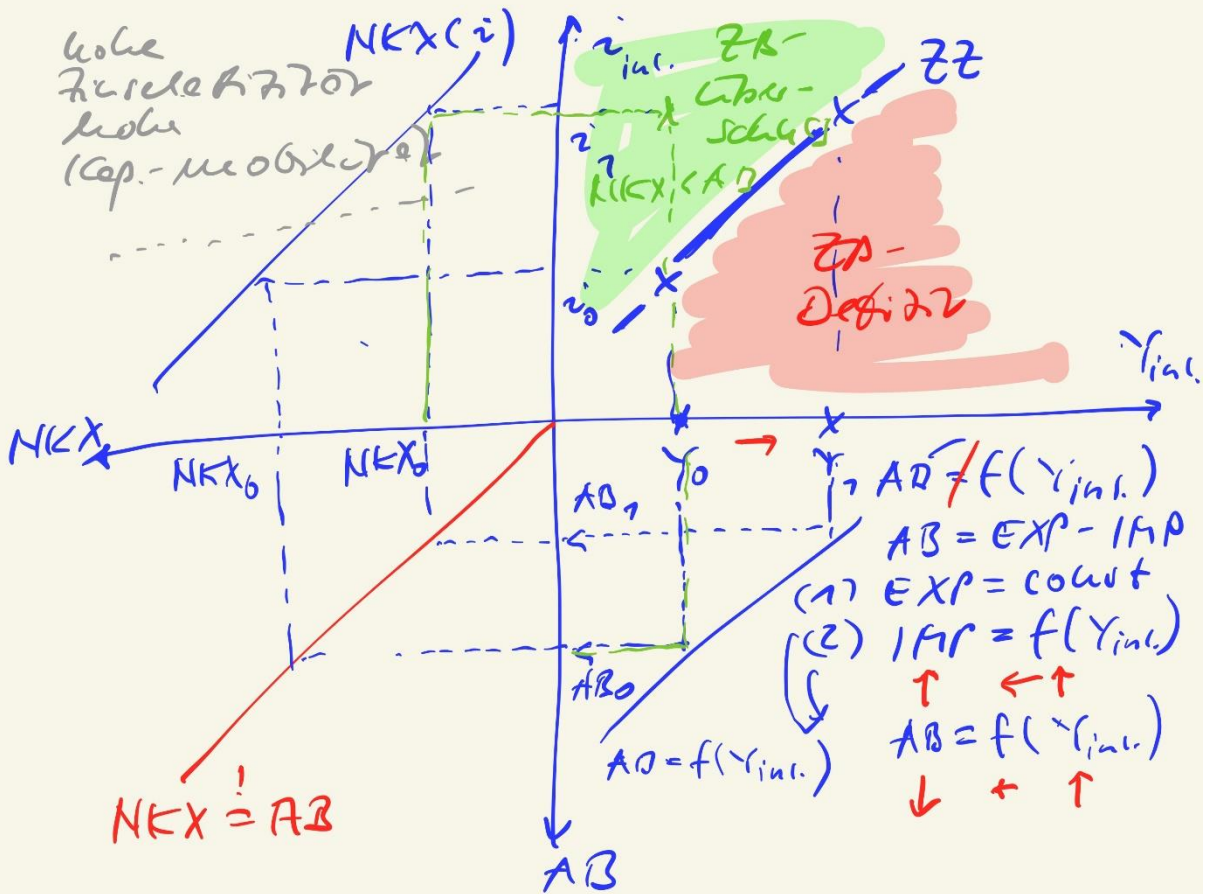 hohe
Zinselastizität
hohe
Kap.-mobilität
NKX(i)
i inl.
ZB-
Über-
schuss
NKX < AB
ZZ
i1
i0
ZB-
Defizit
Yinl.
NKX
NKX0
NKX0
Y0
→
Y1
AB1
AB0
AB = f(Yinl.)
AB = EXP - IMP
(1) EXP = const
(2) IMP = f(Yinl.)
↑ ← ↑
AB = f(Yinl.)
↓ ← ↑
AB = f(Yinl.)
NKX != AB
AB